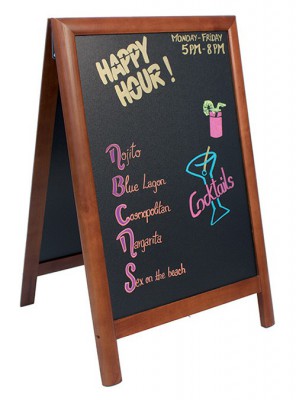 HAPPY
HOUR!
MONDAY-FRIDAY
5PM-8PM
Mojito
Blue Lagon
Cosmopolitan
Margarita
Sex on the beach
Cocktails